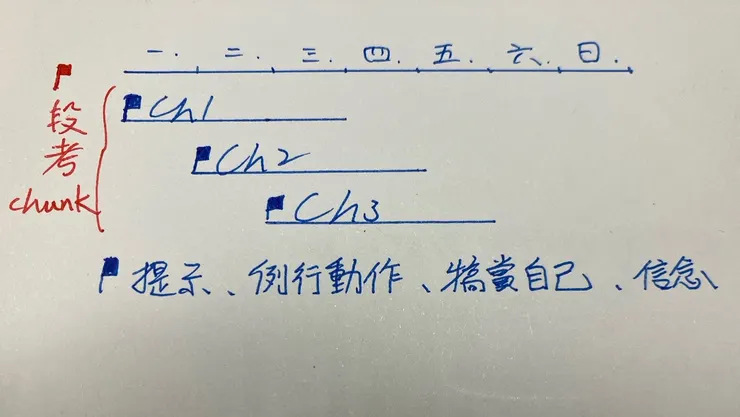 一. 二. 三. 四. 五. 六. 日.
段考
chunk
Ch1
Ch2
Ch3
提示、例行動作、犒賞自己、信念